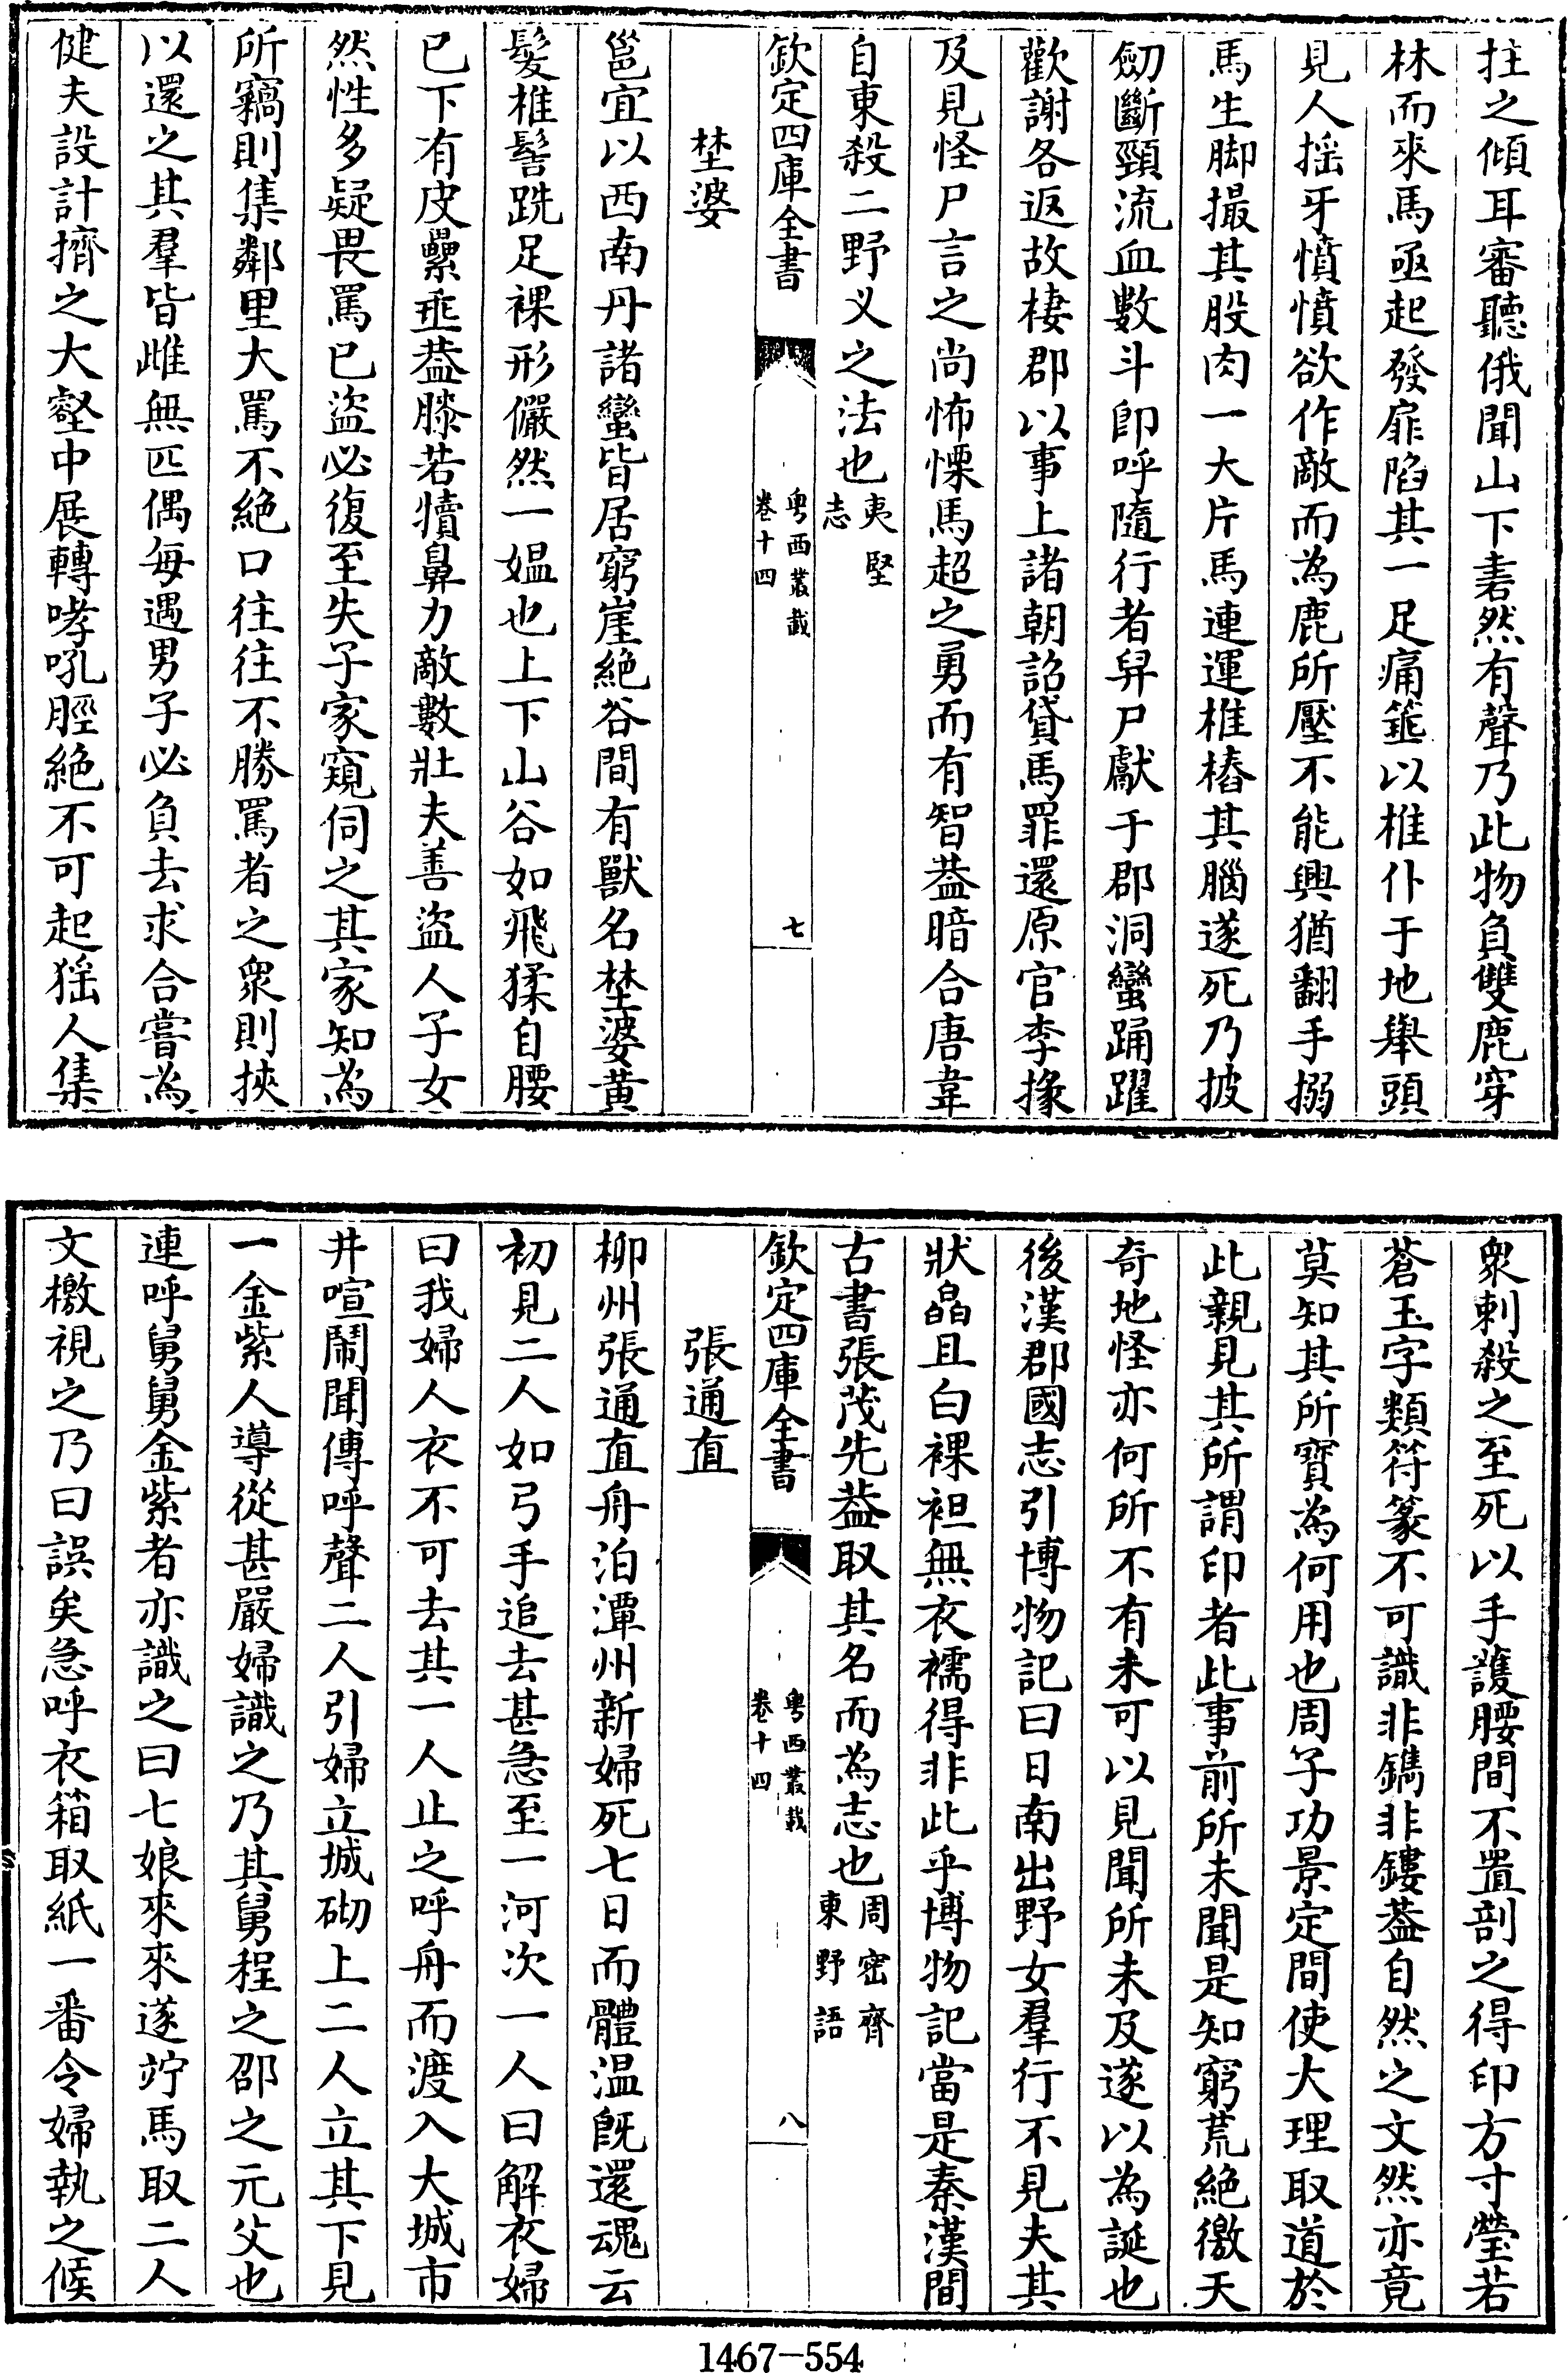 拄之傾耳審聽俄聞山下砉然有聲乃此物負雙鹿穿
林而來馬亟起發扉陷其一足痛箠以椎仆于地舉頭
見人揺牙憤憤欲作敵而為鹿所壓不能興猶翻手搦
馬生脚撮其股肉一大片馬連運椎樁其腦遂死乃拔
劒斷頸流血數斗卽呼隨行者舁尸獻于郡洞蠻踊躍
歡謝各返故棲郡以事上諸朝詔貸馬罪還原官李掾
及見怪尸言之尚怖慄馬超之勇而有智葢暗合唐韋
自東殺二野义之法也夷堅志
欽定四庫全書
粵西叢載
卷十四
七
埜婆
邕宜以西南丹諸蠻皆居窮崖絶谷間有獸名埜婆黄
髮椎髻跣足裸形儼然一媪也上下山谷如飛猱自腰
已下有皮纍垂葢膝若犢鼻力敵數壯夫善盜人子女
然性多疑畏罵已盜必復至失子家窺伺之其家知為
所竊則集鄰里大罵不絶口往往不勝罵者之衆則挾
以還之其羣皆雌無匹偶每遇男子必負去求合嘗為
健夫設計擠之大壑中展轉哮吼脛絶不可起猺人集
衆刺殺之至死以手護腰間不置剖之得印方寸瑩若
蒼玉字類符篆不可識非鐫非鏤葢自然之文然亦竟
莫知其所寶為何用也周子功景定間使大理取道於
此親見其所謂印者此事前所未聞是知窮荒絶徼天
奇地怪亦何所不有未可以見聞所未及遂以為誕也
後漢郡國志引博物記曰日南出野女羣行不見夫其
狀皛且白裸袒無衣襦得非此乎博物記當是秦漢間
古書張茂先葢取其名而為志也周密齊東野語
欽定四庫全書
粵西叢載
卷十四
八
張通直
柳州張通直舟泊潭州新婦死七日而體温旣還魂云
初見二人如弓手追去甚急至一河次一人曰解衣婦
曰我婦人衣不可去其一人止之呼舟而渡入大城市
井喧鬧聞傳呼聲二人引婦立城砌上二人立其下見
一金紫人導從甚嚴婦識之乃其舅程之邵之元父也
連呼舅舅金紫者亦識之曰七娘來來遂竚馬取二人
文檄視之乃曰誤矣急呼衣箱取紙一番令婦執之候
1467-554